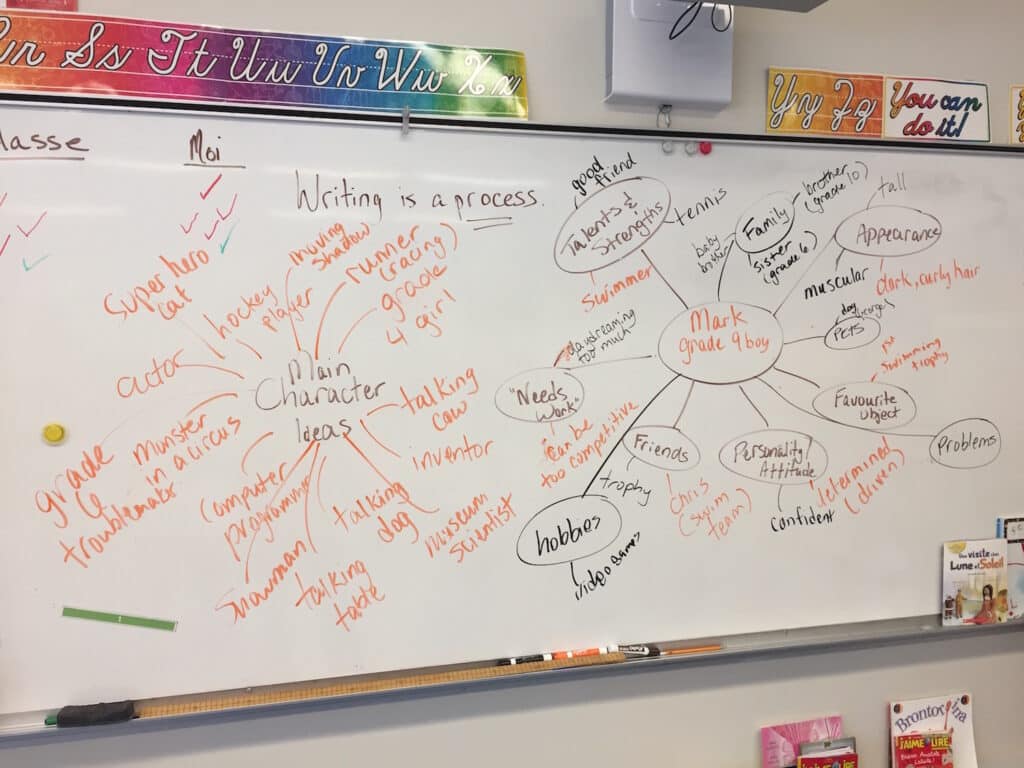 Ss Tt Uu Vv Ww Xx
Yy Zz
You can
do it!
lasse
Moi
Writing is a process.
Super hero
cat
hockey
player
moving
shadow
runner
(racing)
grade
4 girl
actor
Main
Character
Ideas
talking
cow
inventor
monster
in
a circus
grade
6
computer
programmer
talking
dog
museum
scientist
snowman
talking
table
good
friend
Talents &
Strengths
tennis
swimmer
baby
brother
Family
brother
(grade 10)
sister
(grade 6)
tall
Appearance
muscular
dark, curly hair
Mark
grade 9 boy
dog
PETS
daydreaming
too much
"Needs
Work"
can be
too competitive
swimming
trophy
Favourite
object
Problems
Friends
trophy
Chris
(swim
team)
Personality/
Attitude
confident
determined
(drive)
hobbies
video games
Une visite chez
Lune et Soleil
Brontorina
J'AIME LIRE
J'AIME LIRE